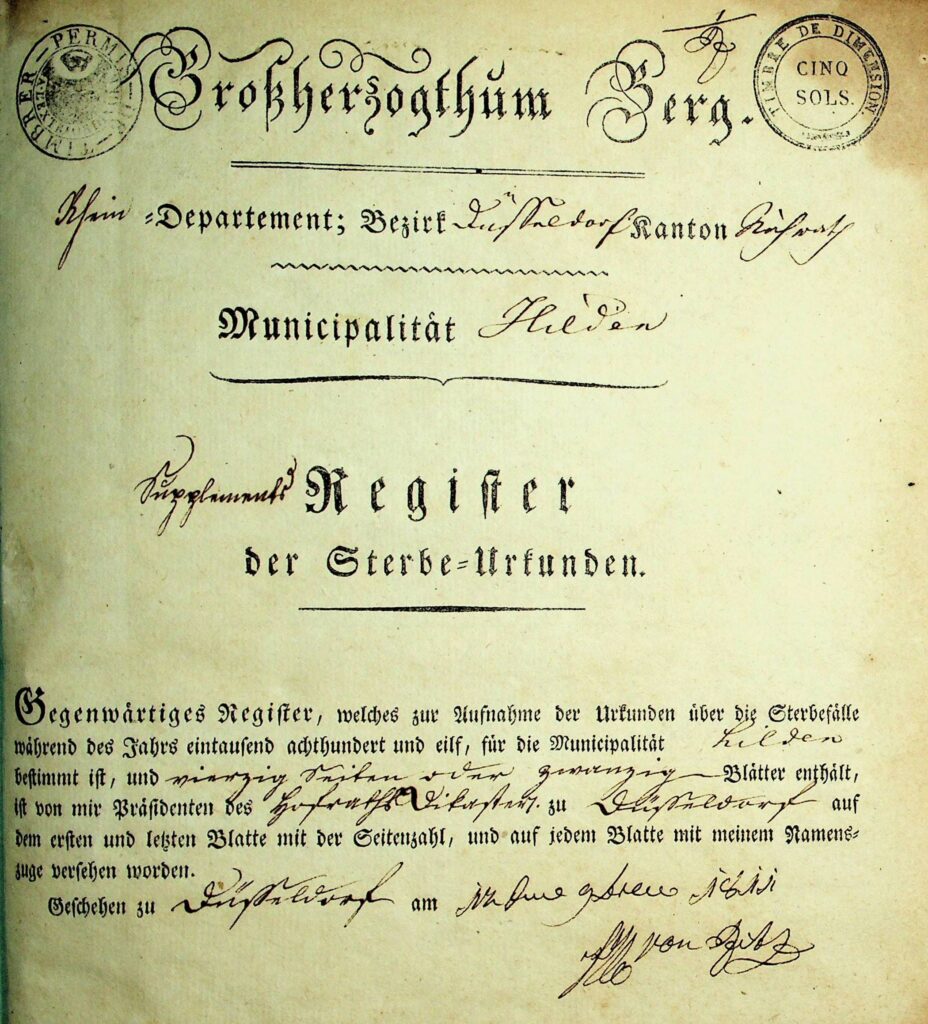 TIMBRE DE DIMENSION.
CINQ
SOLS.
Großherzogthum Berg.
Rhein-Departement; Bezirk Düsseldorf Kanton
Municipalität Hilden
Supplements Register
der Sterbe-Urkunden.
Gegenwärtiges Register, welches zur Aufnahme der Urkunden über die Sterbefälle
während des Jahrs eintausend achthundert und eilf, für die Municipalität Hilden
bestimmt ist, und vierzig Seiten oder zwanzig Blätter enthält,
ist von mir Präsidenten des Hofraths Dikaster. zu Düsseldorf auf
dem ersten und letzten Blatte mit der Seitenzahl, und auf jedem Blatte mit meinem Namens-
zuge versehen worden.
Geschehen zu Düsseldorf am 1811
von Ritz